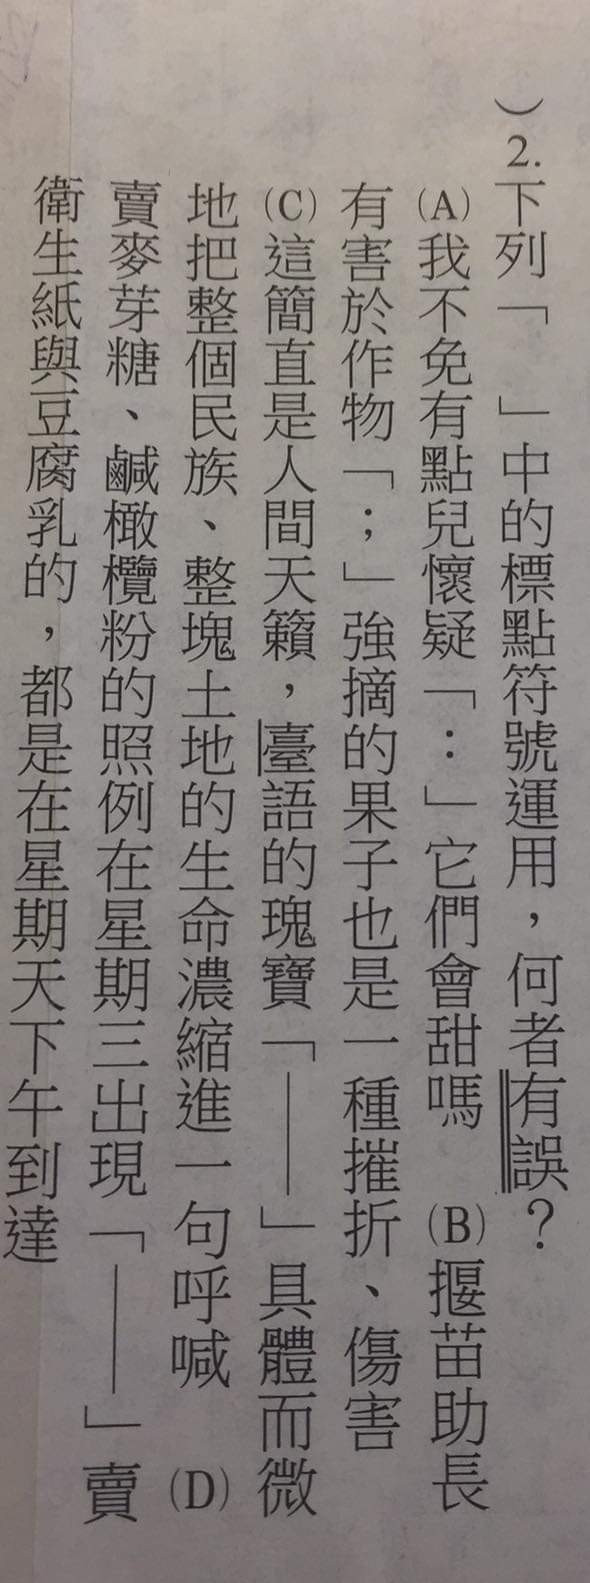 ）2.下列「　」中的標點符號運用，何者有誤？
(A)我不免有點兒懷疑「：」它們會甜嗎　(B)揠苗助長
有害於作物「；」強摘的果子也是一種摧折、傷害
(C)這簡直是人間天籟，臺語的瑰寶「——」具體而微
地把整個民族、整塊土地的生命濃縮進一句呼喊　(D)
賣麥芽糖、鹹橄欖粉的照例在星期三出現「——」賣
衛生紙與豆腐乳的，都是在星期天下午到達